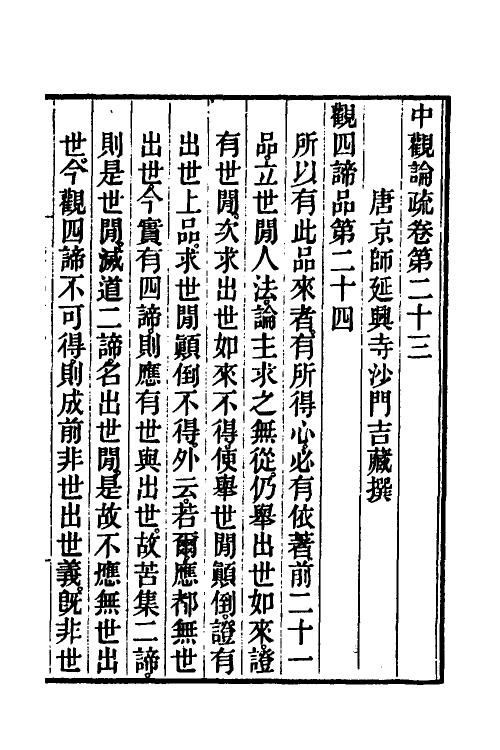 中觀論疏卷第二十三
唐京師延興寺沙門吉藏撰
觀四諦品第二十四
所以有此品來者。有所得心。必有依著。前二十一
品。立世閒人法。論主求之無從。仍舉出世如來。證
有世閒。次求出世如來不得。便舉世閒顚倒。證有
出世上品。求世閒顚倒不得。外云。若爾。應都無世
出世。今實有四諦。則應有世與出世。故苦集二諦。
則是世閒。滅道二諦。名出世閒。是故不應無世出
世。今觀四諦不可得。則成前非世出世義。旣非世